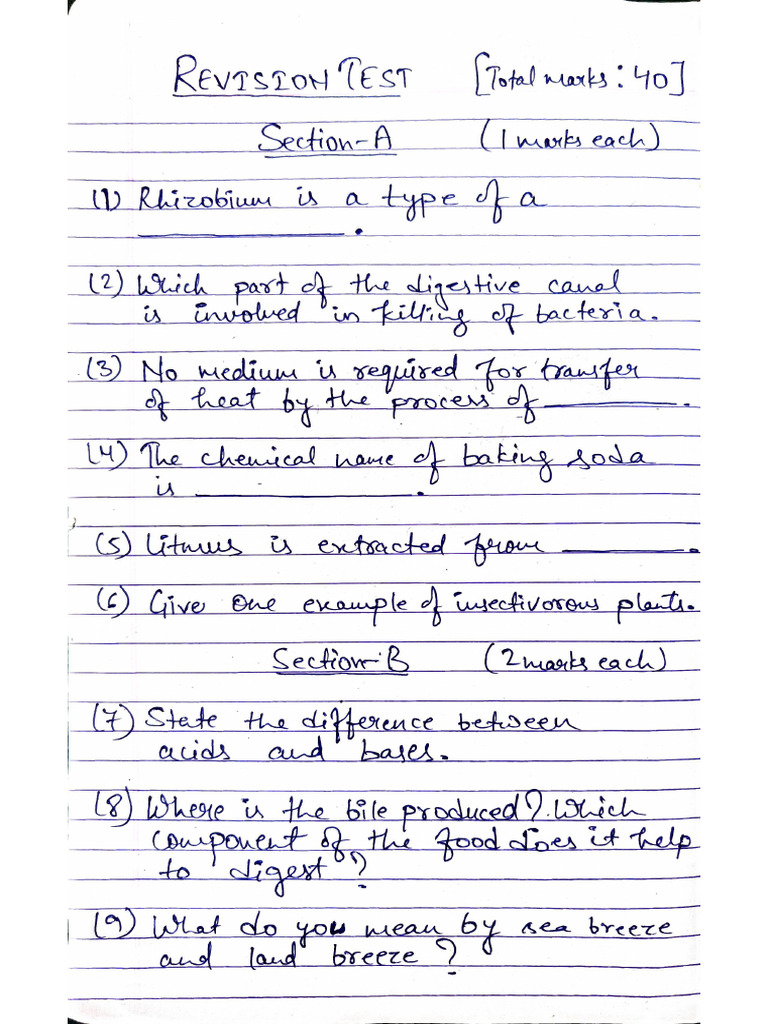 REVISION TEST [Total marks: 40]
Section-A (1 marks each)
(1) Rhizobium is a type of a
____________.
(2) Which part of the digestive canal
is involved in killing of bacteria.
(3) No medium is required for transfer
of heat by the process of ________.
(4) The chemical name of baking soda
is ____________.
(5) Litmus is extracted from ________.
(6) Give one example of insectivorous plants.
Section-B (2 marks each)
(7) State the difference between
acids and bases.
(8) Where is the bile produced? Which
component of the food does it help
to digest?
(9) What do you mean by sea breeze
and land breeze?